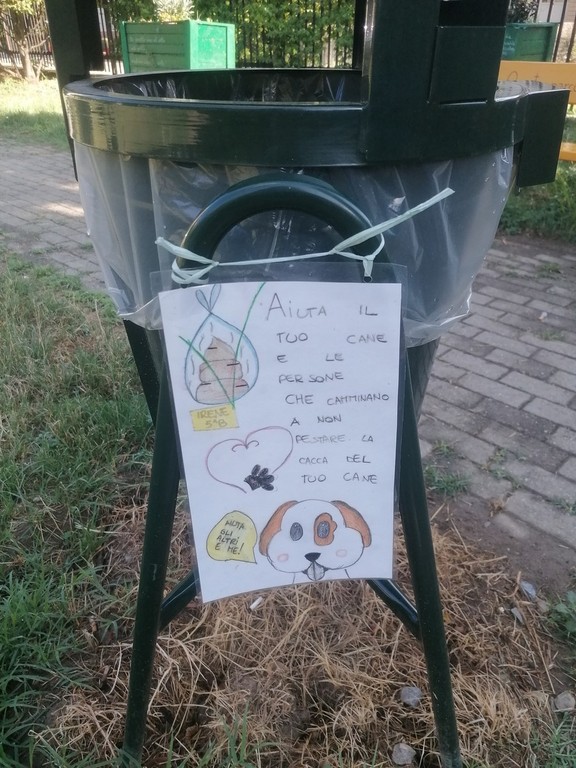 AIUTA IL
TUO CANE
E LE
PERSONE
CHE CAMMINANO
A NON
PESTARE LA
CACCA DEL
TUO CANE
IRENE
5ªB
AIUTA
GLI
ALTRI
E ME!